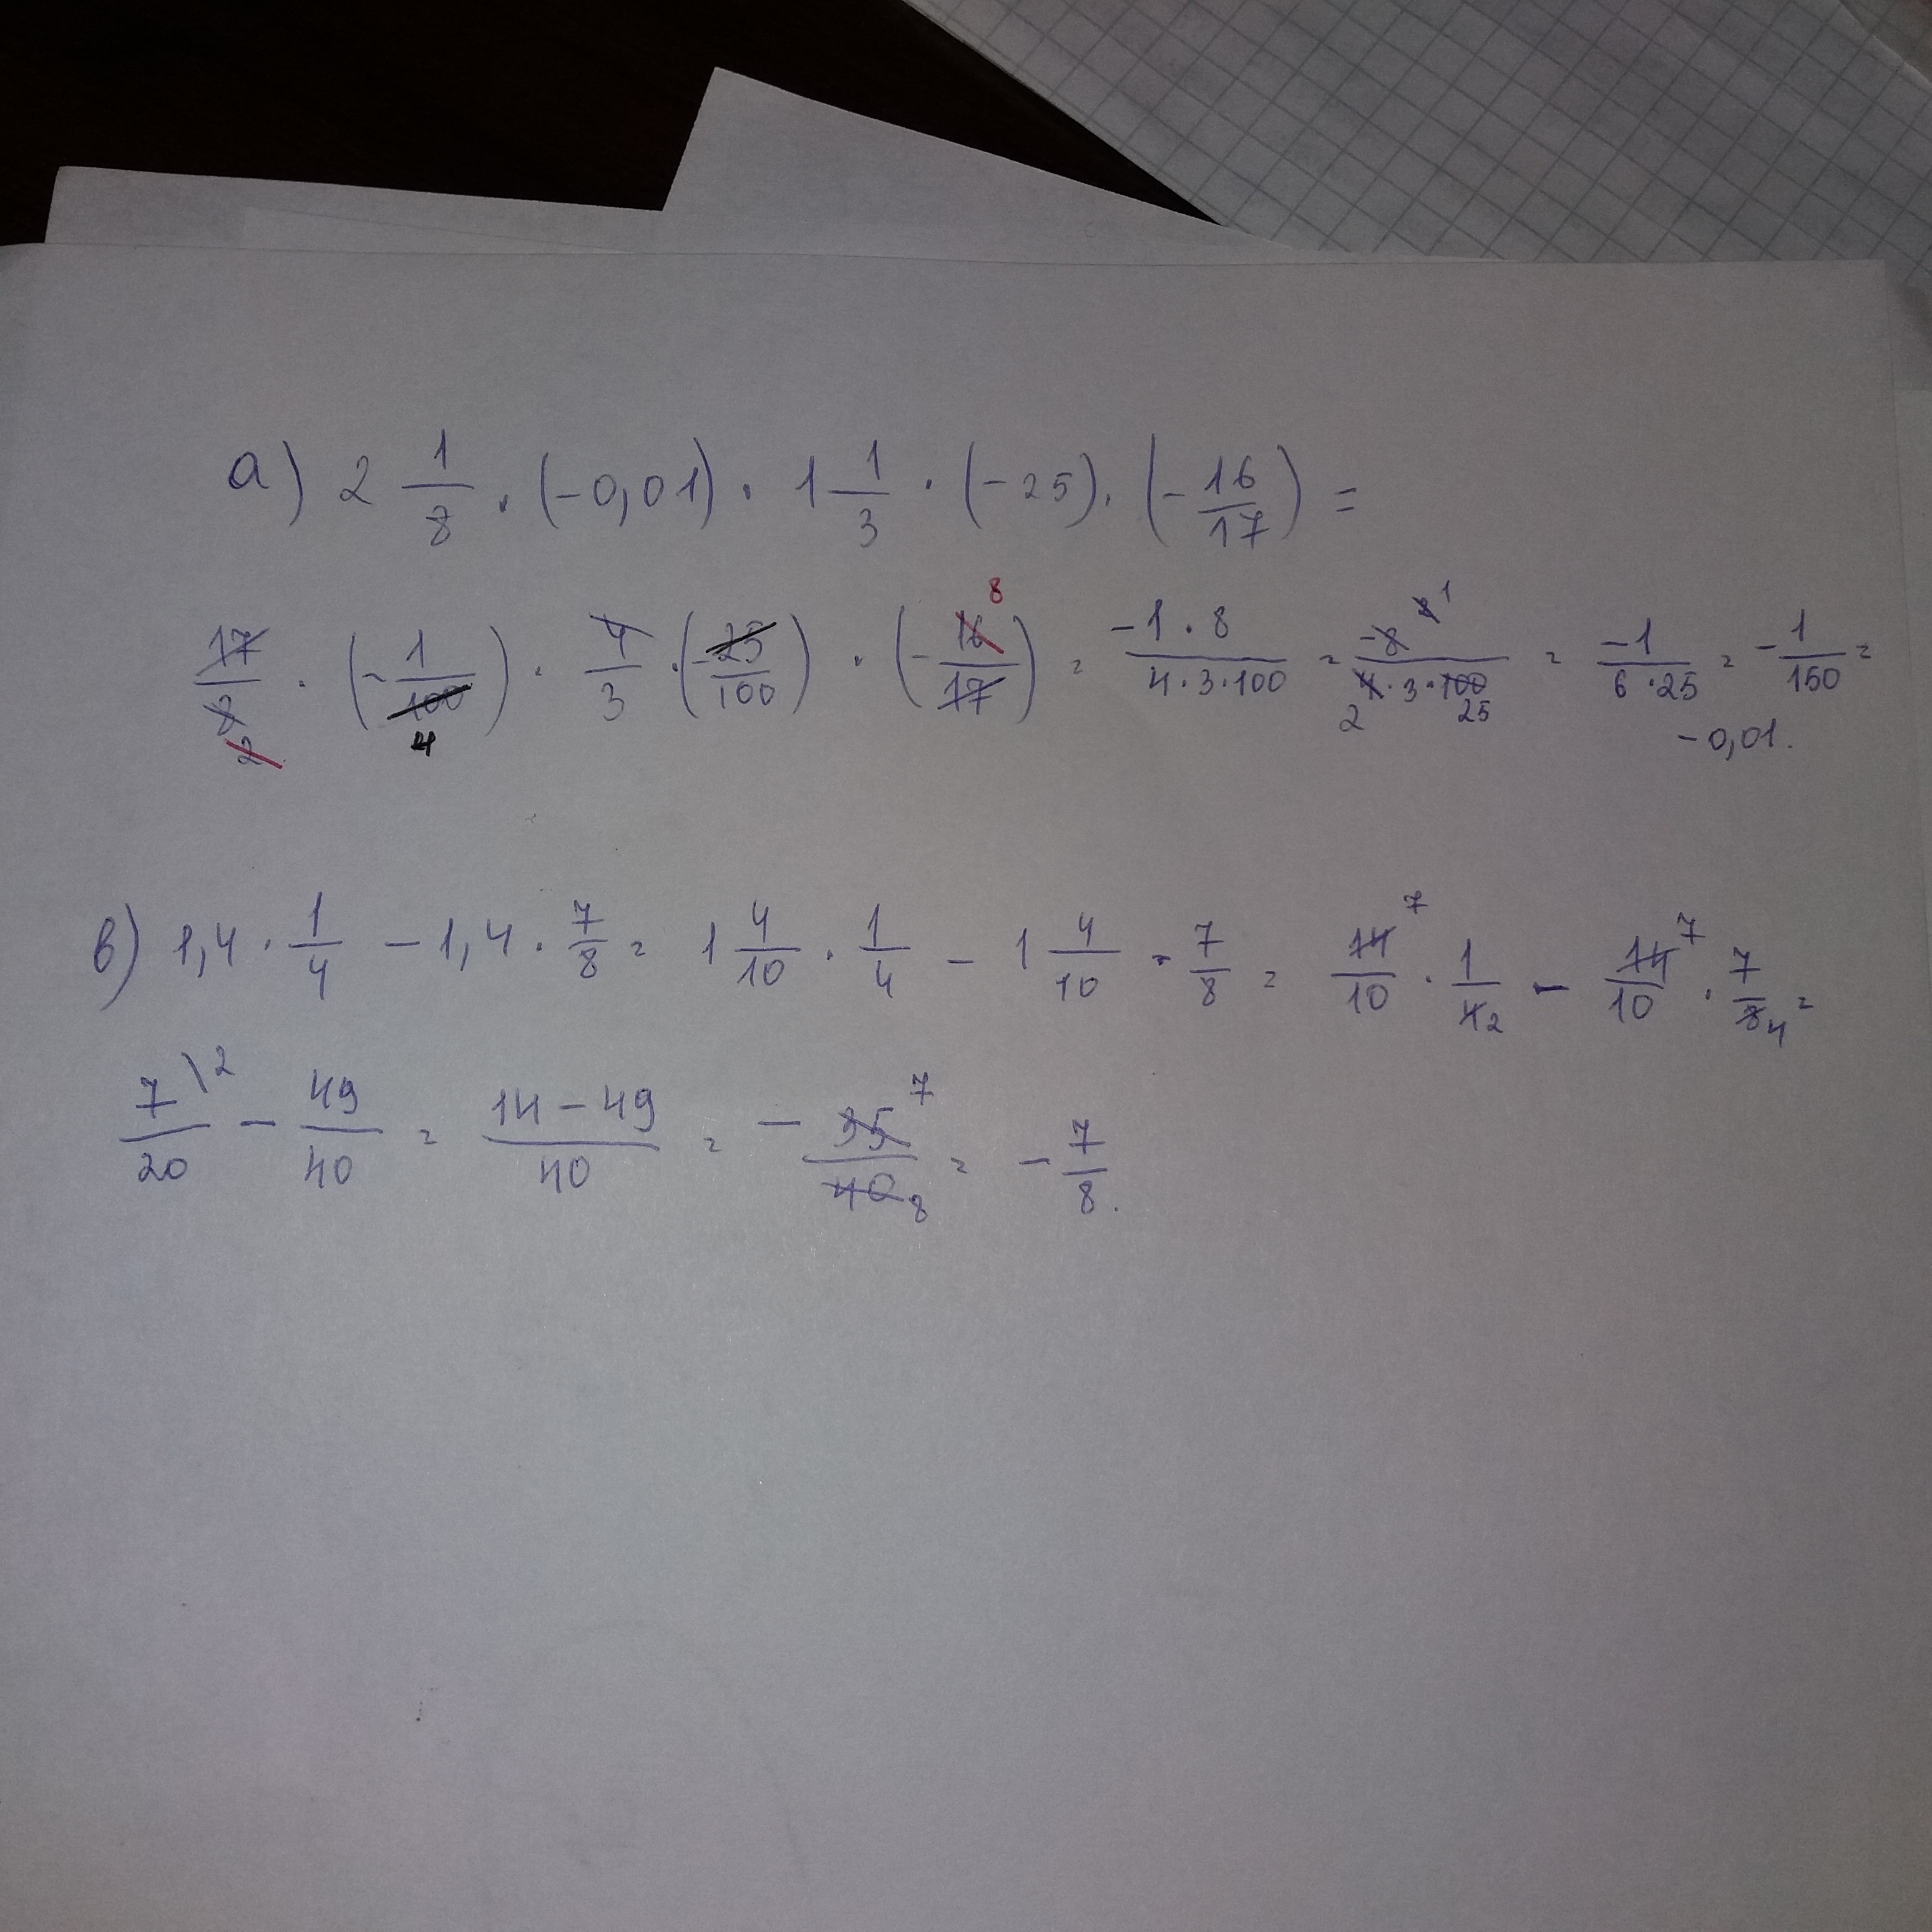 а) 2 1/8 · (-0,01) · 1 1/3 · (-25) · (-16/17) =
17/8 2 · (-1/100 4) · 4/3 · (-25/100) · (-16 8/17) = -1·8/4·3·100 = -8 4 1/4·3·100 2 25 = -1/6·25 = -1/150 =
-0,01.
в) 1,4 · 1/4 - 1,4 · 7/8 = 1 4/10 · 1/4 - 1 4/10 · 7/8 = 14 7/10 · 1/4 2 - 14 7/10 · 7/8 4 =
7\2/20 - 49/40 = 14-49/40 = - 35 7/40 8 = - 7/8.